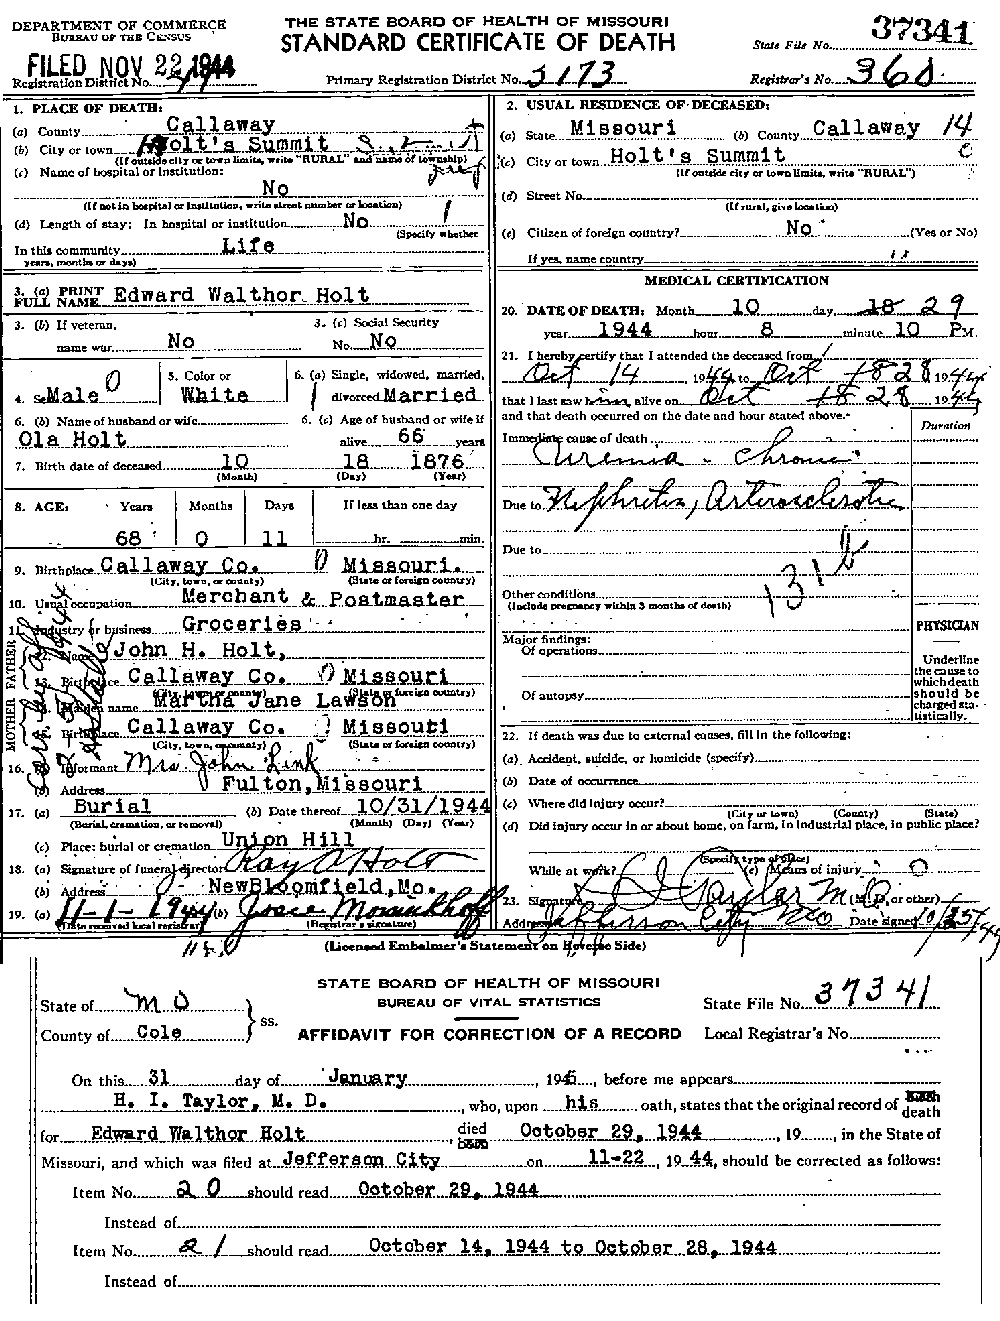 DEPARTMENT OF COMMERCE
BUREAU OF THE CENSUS
THE STATE BOARD OF HEALTH OF MISSOURI
STANDARD CERTIFICATE OF DEATH
State File No. 37341
FILED NOV 22 1944
Registration District No.
Primary Registration District No. 5173
Registrar's No. 360
1. PLACE OF DEATH:
(a) County Callaway
(b) City or town Holt's Summit
(If outside city or town limits, write "RURAL" and name of township)
(c) Name of hospital or institution:
No
(If not in hospital or institution, write street number or location)
(d) Length of stay: In hospital or institution No
(Specify whether
In this community Life
years, months or days)
2. USUAL RESIDENCE OF DECEASED:
(a) State Missouri (b) County Callaway 14
(c) City or town Holt's Summit
(If outside city or town limits, write "RURAL")
(d) Street No.
(If rural, give location)
(e) Citizen of foreign country? No (Yes or No)
If yes, name country
3. (a) PRINT FULL NAME Edward Walthor Holt
3. (b) If veteran, name war No
3. (c) Social Security No. No
4. Sex Male
5. Color or White
6. (a) Single, widowed, married, divorced Married
6. (b) Name of husband or wife Ola Holt
6. (c) Age of husband or wife if alive 66 years
7. Birth date of deceased 10 18 1876
(Month) (Day) (Year)
8. AGE: Years Months Days If less than one day
68 0 11 hr. min.
9. Birthplace Callaway Co. Missouri.
(City, town, or county) (State or foreign country)
10. Usual occupation Merchant & Postmaster
11. Industry or business Groceries
FATHER
12. Name John H. Holt,
13. Birthplace Callaway Co. Missouri
(City, town, or county) (State or foreign country)
MOTHER
14. Maiden name Martha Jane Lawson
15. Birthplace Callaway Co. Missouri
(City, town, or county) (State or foreign country)
16. (a) Informant Mrs John Link
(b) Address Fulton, Missouri
17. (a) Burial (b) Date thereof 10/31/1944
(Burial, cremation, or removal) (Month) (Day) (Year)
(c) Place: burial or cremation Union Hill
18. (a) Signature of funeral director Ray A Holt
(b) Address NewBloomfield, Mo.
19. (a) 11-1-1944 (b) Josie
(Date received local registrar) (Registrar's signature)
MEDICAL CERTIFICATION
20. DATE OF DEATH: Month 10 day 18 29
year 1944 hour 8 minute 10 P.M.
21. I hereby certify that I attended the deceased from
Oct 14, 1944 to Oct 18 28 1944
that I last saw him alive on Oct 18 28 1944
and that death occurred on the date and hour stated above.
Duration
Immediate cause of death
Uremia - Chronic
Due to Nephritis, Arteriosclerotic
Due to
131b
Other conditions
(Include pregnancy within 3 months of death)
Major findings:
Of operations
Of autopsy
PHYSICIAN
Underline the cause to which death should be charged statistically.
22. If death was due to external causes, fill in the following:
(a) Accident, suicide, or homicide (specify)
(b) Date of occurrence
(c) Where did injury occur?
(City or town) (County) (State)
(d) Did injury occur in or about home, on farm, in industrial place, in public place?
(Specify type of place)
While at work? (e) Means of injury
23. Signature H I Taylor M.D. (M.D. or other)
Address Jefferson City Mo Date signed
(Licensed Embalmer's Statement on Reverse Side)
STATE BOARD OF HEALTH OF MISSOURI
BUREAU OF VITAL STATISTICS
AFFIDAVIT FOR CORRECTION OF A RECORD
State of MO
County of Cole
ss.
State File No. 37341
Local Registrar's No.
On this 31 day of January, 1945, before me appears
H. I. Taylor, M. D., who, upon his oath, states that the original record of birth death
for Edward Walthor Holt died born October 29, 1944, 19, in the State of
Missouri, and which was filed at Jefferson City on 11-22, 1944, should be corrected as follows:
Item No. 20 should read October 29, 1944
Instead of
Item No. 21 should read October 14, 1944 to October 28, 1944
Instead of